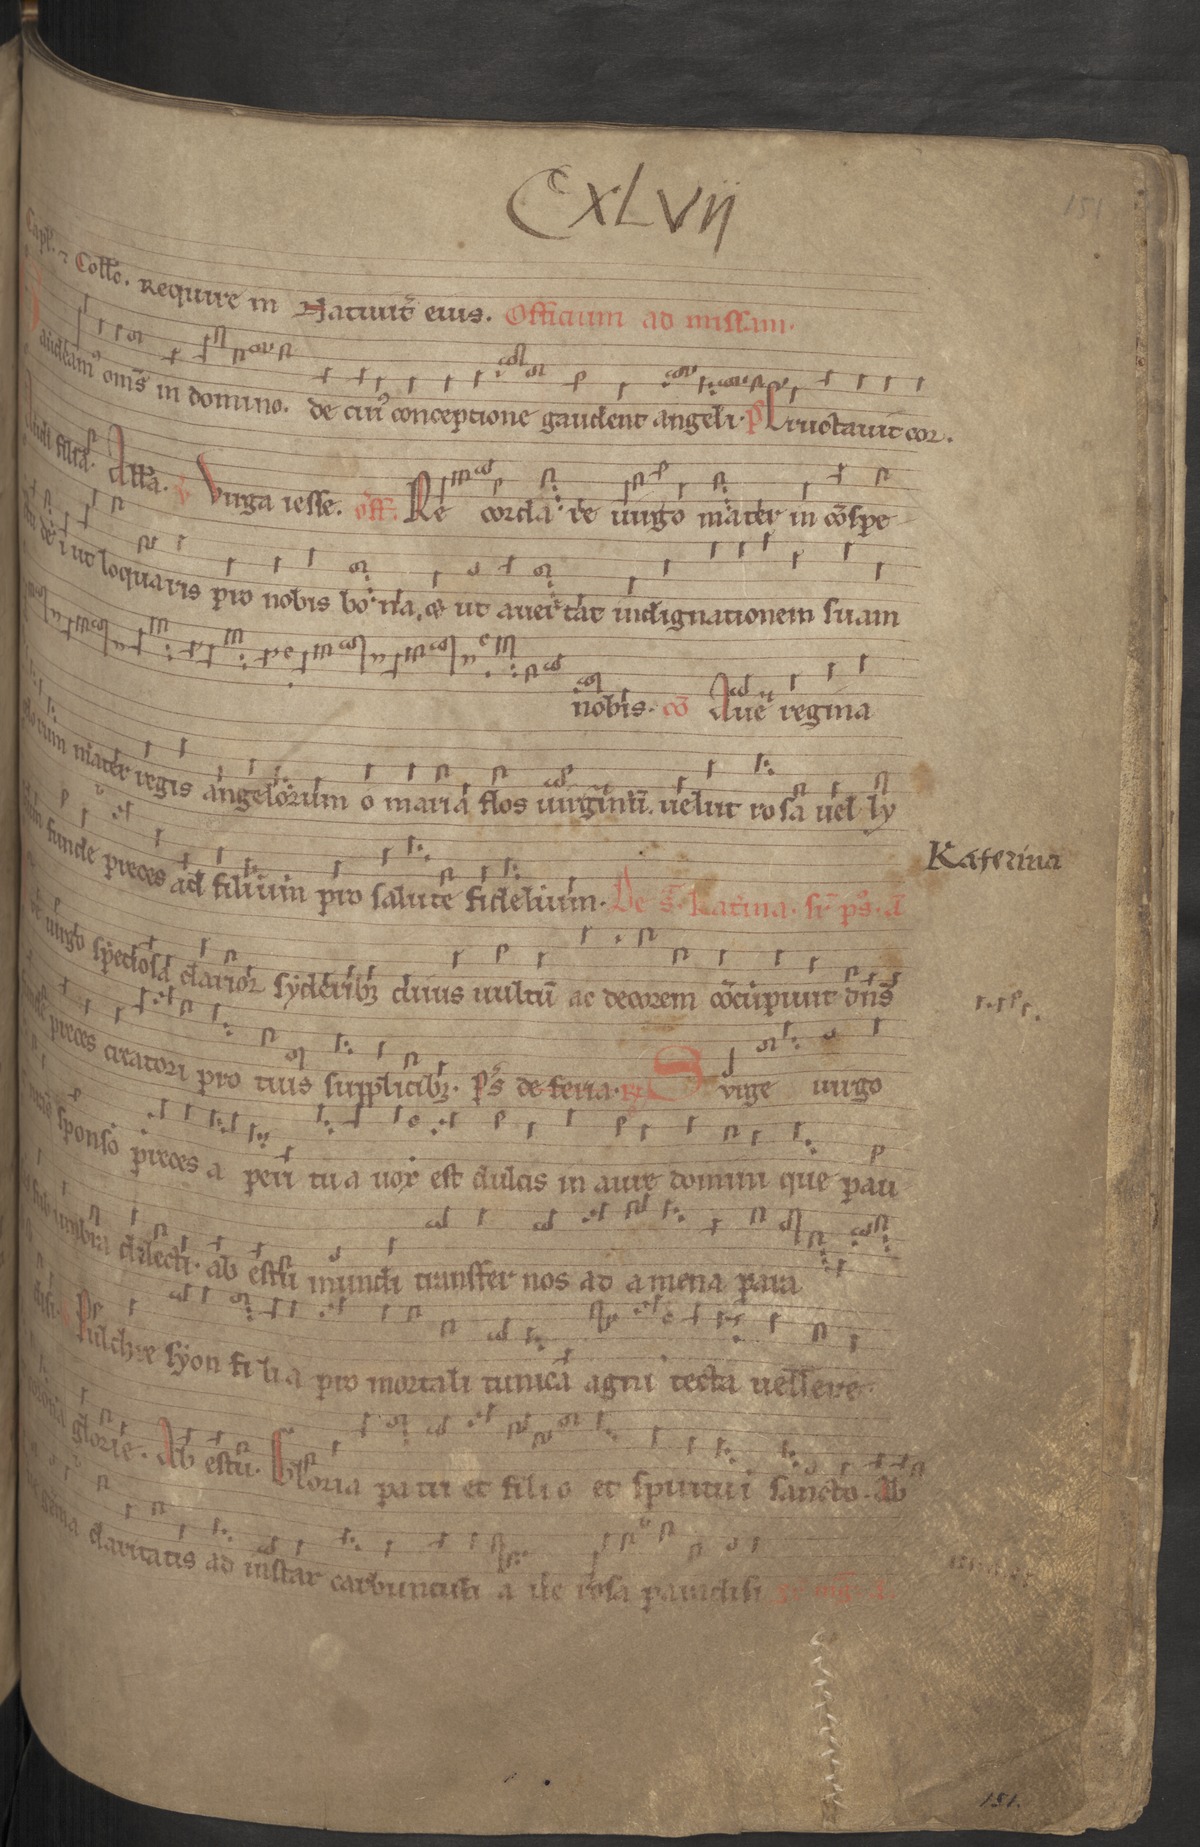 CXLVII
151
Capl. ⁊ Coll̅e. Require in Natiuit̅ eius. Officium ad missam.
Gaudeam⁹ om̅s in domino. de cui⁹ conceptione gaudent angeli. p̅s Eructauit cor.
Audi filia. All̅a. v̅ Uirga iesse. off̅. Re corda re uirgo mater in co̅spe
tu dei ut loquaris pro nobis bo na. et ut auertat indignationem suam
nobis. co̅ Aue regina
celorum mater regis angelorum o maria flos uirginu̅. uelut rosa uel ly
lium funde preces ad filium pro salute fidelium. De s̅. Katerina. sr̅ ps̅. a̅
Katerina
uirgo speciosa clarior syderibꝫ cuius uultu̅ ac decorem co̅cupiuit dn̅s
funde preces creatori pro tuis supplicibꝫ. Ps̅ de feria. R̅ Surge uirgo
et nostras sponso preces a peri tua uox est dulcis in aure domini que pau
sas sub umbra dilecti. ab estu mundi transfer nos ad amena para
disi. v̅ Pulchre syon fi li a pro mortali tunica agni tecta uellere
corona glorie. Ab estu. Gloria patri et filio et spiritui sancto. Ab
gema claritatis ad instar carbunculi a ue rosa paradisi
151.